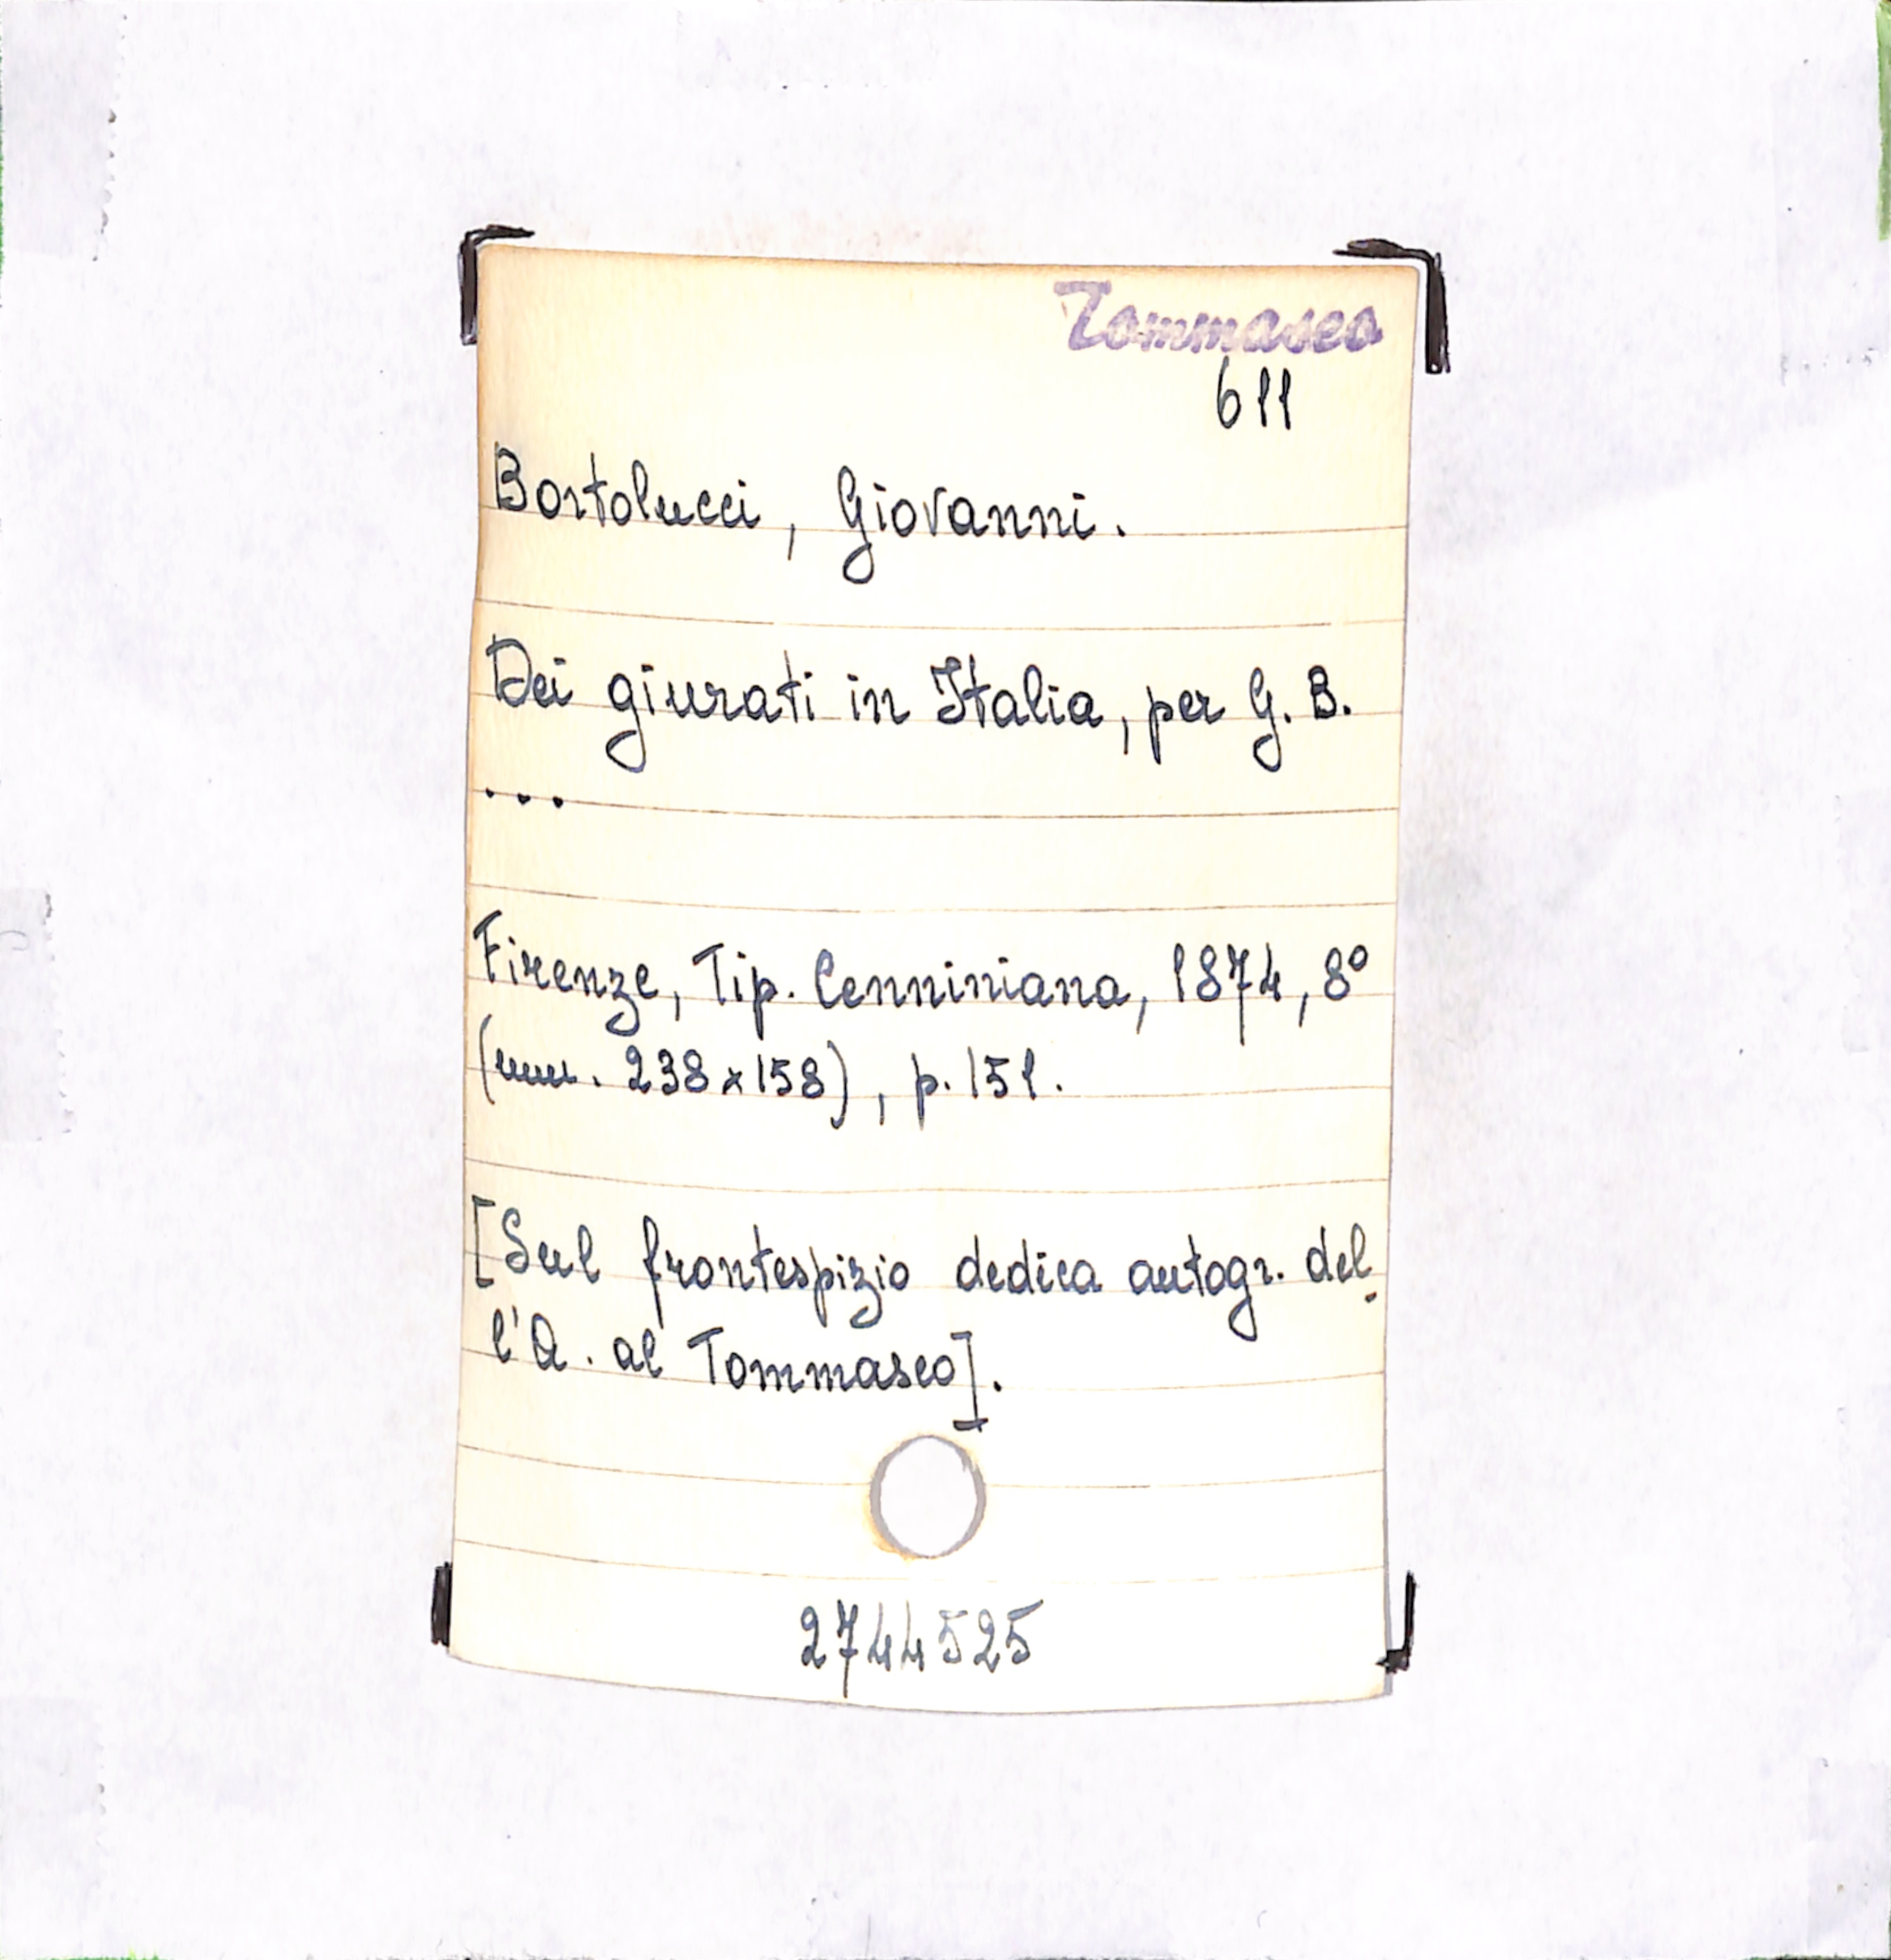 Tommaseo
611
Bortolucci, Giovanni.
Dei giurati in Italia, per G. B.
...
Firenze, Tip. Cenniniana, 1874, 8º
(mm. 238x158), p. 151.
[Sul frontespizio dedica autogr. del-
l'A. al Tommaseo].
2744525